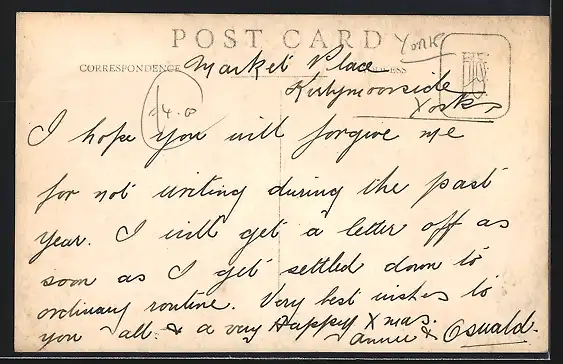 POST CARD
York
CORRESPONDENCE
Market Place
Kirbymoorside
Yorks
I hope you will forgive me
for not writing during the past
year. I will get a letter off as
soon as I get settled down to
ordinary routine. Very best wishes to
you all & a very Happy Xmas.
Annie & Oswald.